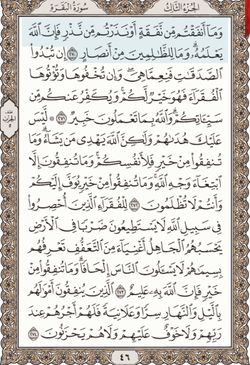 الجزء الثالث سورة البقرة
وما أنفقتم من نفقة أو نذرتم من نذر فإن الله
يعلمه وما للظالمين من أنصار ٢٧٠ إن تبدوا
الصدقات فنعما هي وإن تخفوها وتؤتوها
الفقراء فهو خير لكم ويكفر عنكم من
سيئاتكم والله بما تعملون خبير ٢٧١ ليس
عليك هداهم ولكن الله يهدي من يشاء وما
تنفقوا من خير فلأنفسكم وما تنفقون إلا
ابتغاء وجه الله وما تنفقوا من خير يوف إليكم
وأنتم لا تظلمون ٢٧٢ للفقراء الذين أحصروا
في سبيل الله لا يستطيعون ضربا في الأرض
يحسبهم الجاهل أغنياء من التعفف تعرفهم
بسيماهم لا يسألون الناس إلحافا وما تنفقوا من
خير فإن الله به عليم ٢٧٣ الذين ينفقون أموالهم
بالليل والنهار سرا وعلانية فلهم أجرهم عند
ربهم ولا خوف عليهم ولا هم يحزنون ٢٧٤
٤٦